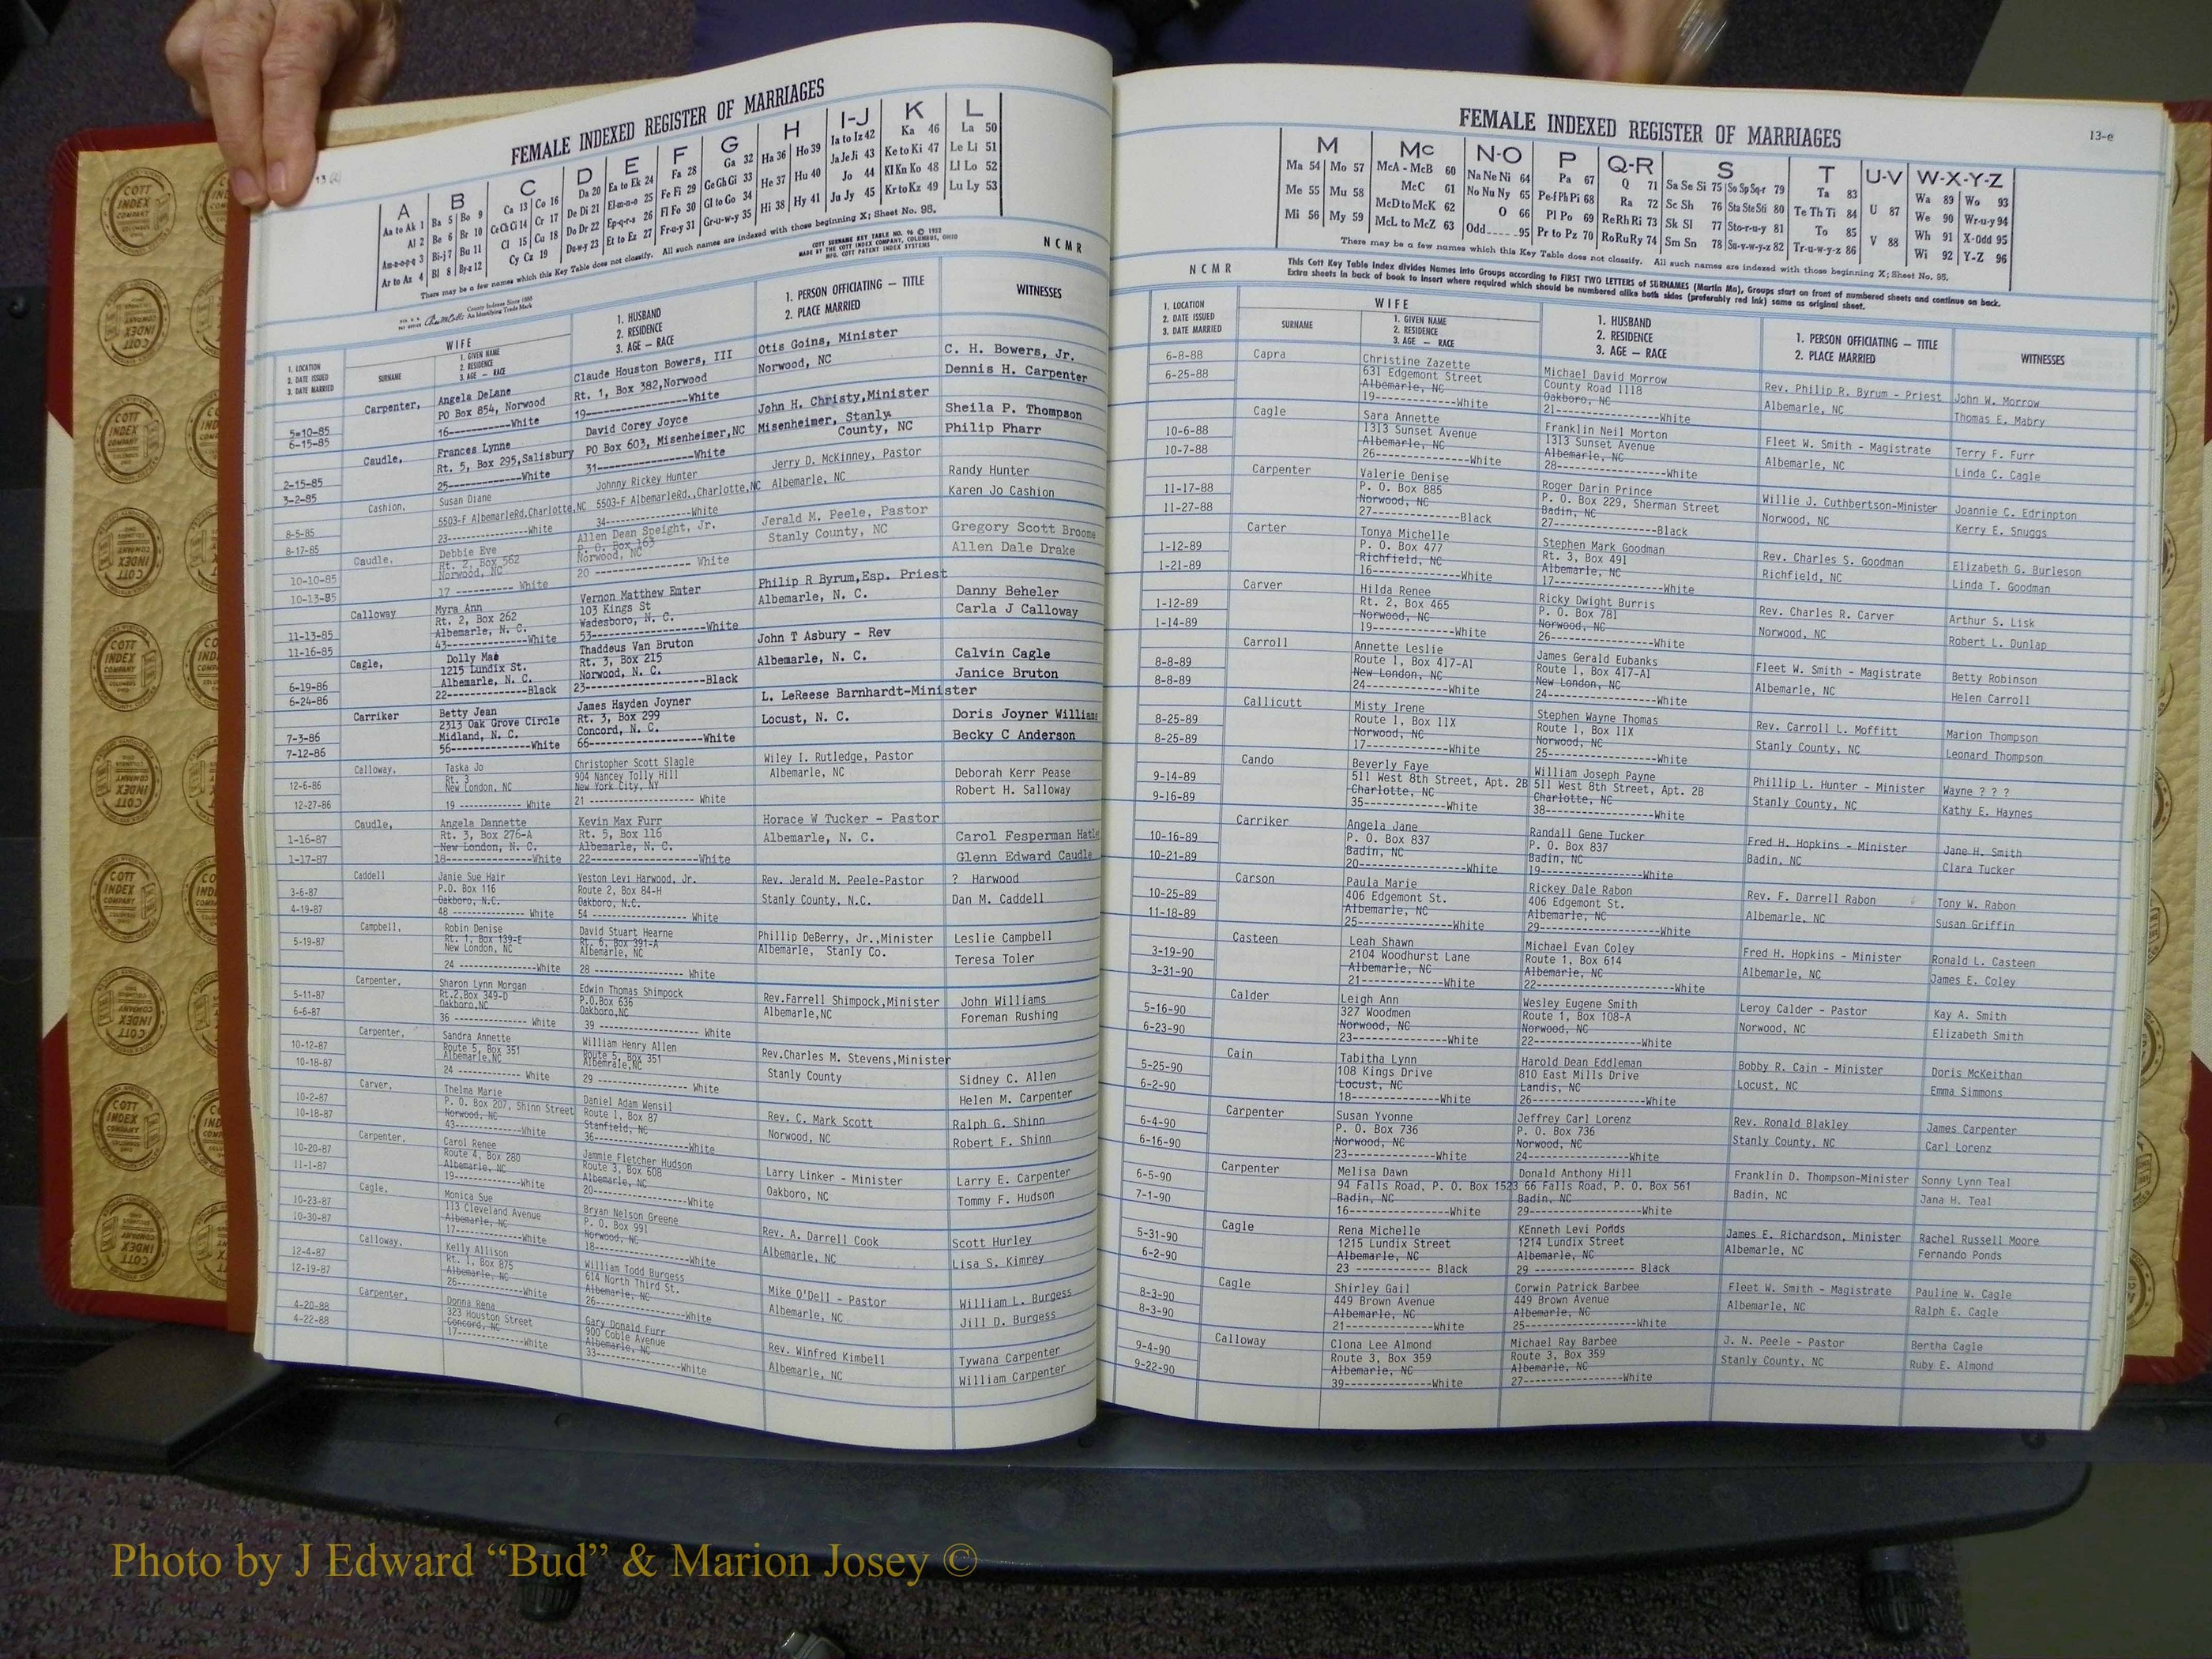 FEMALE INDEXED REGISTER OF MARRIAGES
A B C D E F G H I-J K L
Aa to Ak 1 Ba 5 Bo 9 Ca 13 Co 16 Da 20 Ea to Ek 24 Fa 28 Ga 32 Ha 36 Ho 39 Ia to Iz 42 Ka 46 La 50
Al 2 Be 6 Br 10 Ce Ch Ci 14 Cr 17 De Di 21 El-m-n-o 25 Fe Fi 29 Ge Gh Gi 33 He 37 Hu 40 Ja Je Ji 43 Ke to Ki 47 Le Li 51
Am-n-o-p-q 3 Bi-j 7 Bu 11 Cl 15 Cu 18 Do Dr 22 Ep-q-r-s 26 Fl Fo 30 Gl to Go 34 Hi 38 Hy 41 Jo 44 Kl Kn Ko 48 Ll Lo 52
Ar to Az 4 Bl 8 By-z 12 Cy Cz 19 Du-w-y 23 Et to Ez 27 Fr-u-y 31 Gr-u-w-y 35 Ju Jy 45 Kr to Kz 49 Lu Ly 53
There may be a few names which this Key Table does not classify. All such names are indexed with those beginning X; Sheet No. 95.
COTT SURNAME KEY TABLE NO. 96 © 1952
MADE BY THE COTT INDEX COMPANY, COLUMBUS, OHIO
MFG. COTT PATENT INDEX SYSTEMS
County Indexes Since 1880
An Identifying Trade Mark
N C M R
1. LOCATION
2. DATE ISSUED
3. DATE MARRIED
WIFE
SURNAME
1. GIVEN NAME
2. RESIDENCE
3. AGE — RACE
1. HUSBAND
2. RESIDENCE
3. AGE — RACE
1. PERSON OFFICIATING — TITLE
2. PLACE MARRIED
WITNESSES
5-10-85
6-15-85
Carpenter,
Angela DeLane
PO Box 854, Norwood
16-----------White
Claude Houston Bowers, III
Rt. 1, Box 382,Norwood
19---------------White
Otis Goins, Minister
Norwood, NC
C. H. Bowers, Jr.
Dennis H. Carpenter
2-15-85
3-2-85
Caudle,
Frances Lynne
Rt. 5, Box 295,Salisbury
25-------------White
David Corey Joyce
PO Box 603, Misenheimer,NC
31---------------White
John H. Christy,Minister
Misenheimer, Stanly
County, NC
Sheila P. Thompson
Philip Pharr
8-5-85
8-17-85
Cashion,
Susan Diane
5503-F AlbemarleRd,Charlotte,NC
23---------------White
Johnny Rickey Hunter
5503-F AlbemarleRd.,Charlotte,NC
34--------------White
Jerry D. McKinney, Pastor
Albemarle, NC
Randy Hunter
Karen Jo Cashion
10-10-85
10-13-85
Caudle,
Debbie Eve
Rt. 2, Box 562
Norwood, NC
17 ---------- White
Allen Dean Speight, Jr.
P. O. Box 163
Norwood, NC
20 --------------- White
Jerald M. Peele, Pastor
Stanly County, NC
Gregory Scott Broome
Allen Dale Drake
11-13-85
11-16-85
Calloway
Myra Ann
Rt. 2, Box 262
Albemarle, N. C.
43-------------White
Vernon Matthew Emter
103 Kings St
Wadesboro, N. C.
53------------------White
Philip R Byrum,Esp. Priest
Albemarle, N. C.
Danny Beheler
Carla J Calloway
6-19-86
6-24-86
Cagle,
Dolly Mae
1215 Lundix St.
Albemarle, N. C.
22-------------Black
Thaddeus Van Bruton
Rt. 3, Box 215
Norwood, N. C.
23------------------Black
John T Asbury - Rev
Albemarle, N. C.
Calvin Cagle
Janice Bruton
7-3-86
7-12-86
Carriker
Betty Jean
2313 Oak Grove Circle
Midland, N. C.
56-------------White
James Hayden Joyner
Rt. 3, Box 299
Concord, N. C.
66------------------White
L. LeReese Barnhardt-Minister
Locust, N. C.
Doris Joyner Williams
Becky C Anderson
12-6-86
12-27-86
Calloway,
Taska Jo
Rt. 3
New London, NC
19 ------------ White
Christopher Scott Slagle
904 Nancy Tolly Hill
New York City, NY
21 ------------------- White
Wiley I. Rutledge, Pastor
Albemarle, NC
Deborah Kerr Pease
Robert H. Salloway
1-16-87
1-17-87
Caudle,
Angela Dannette
Rt. 3, Box 276-A
New London, N. C.
18---------------White
Kevin Max Furr
Rt. 5, Box 116
Albemarle, N. C.
22------------------White
Horace W Tucker - Pastor
Albemarle, N. C.
Carol Fesperman
Glenn Edward Caudle
3-6-87
4-19-87
Caddell
Janie Sue Hair
P.O. Box 116
Oakboro, N.C.
48 -------------- White
Veston Levi Harwood, Jr.
Route 2, Box 84-H
Oakboro, N.C.
54 ------------------- White
Rev. Jerald M. Peele-Pastor
Stanly County, N.C.
? Harwood
Dan M. Caddell
5-19-87
Campbell,
Robin Denise
Rt. 1, Box 139-E
New London, NC
24 ---------------White
David Stuart Hearne
Rt. 6, Box 391-A
Albemarle, NC
28 ----------------- White
Phillip DeBerry, Jr.,Minister
Albemarle, Stanly Co.
Leslie Campbell
Teresa Toler
5-11-87
6-6-87
Carpenter,
Sharon Lynn Morgan
Rt.2,Box 349-D
Oakboro,NC
36 -------------- White
Edwin Thomas Shimpock
P.O.Box 636
Oakboro,NC
39 ------------------- White
Rev.Farrell Shimpock,Minister
Albemarle,NC
John Williams
Foreman Rushing
10-12-87
10-18-87
Carpenter,
Sandra Annette
Route 5, Box 351
Albemarle,NC
24 ------------- White
William Henry Allen
Route 5, Box 351
Albemrale,NC
29 ----------------- White
Rev.Charles M. Stevens,Minister
Stanly County
Sidney C. Allen
Helen M. Carpenter
10-2-87
10-18-87
Carver,
Thelma Marie
P. O. Box 207, Shinn Street
Norwood, NC
43---------------White
Daniel Adam Wensil
Route 1, Box 87
Stanfield, NC
36----------------White
Rev. C. Mark Scott
Norwood, NC
Ralph G. Shinn
Robert F. Shinn
10-20-87
11-1-87
Carpenter,
Carol Renee
Route 4, Box 280
Albemarle, NC
19---------------White
Jammie Fletcher Hudson
Route 3, Box 608
Albemarle, NC
20----------------White
Larry Linker - Minister
Oakboro, NC
Larry E. Carpenter
Tommy F. Hudson
10-23-87
10-30-87
Cagle,
Monica Sue
113 Cleveland Avenue
Albemarle, NC
17---------------White
Bryan Nelson Greene
P. O. Box 991
Norwood, NC
18----------------White
Rev. A. Darrell Cook
Albemarle, NC
Scott Hurley
Lisa S. Kimrey
12-4-87
12-19-87
Calloway,
Kelly Allison
Rt. 1, Box 875
Albemarle, NC
26---------------White
William Todd Burgess
614 North Third St.
Albemarle, NC
26----------------White
Mike O'Dell - Pastor
Albemarle, NC
William L. Burgess
Jill D. Burgess
4-20-88
4-22-88
Carpenter,
Donna Rena
323 Houston Street
Concord, NC
17---------------White
Gary Donald Furr
900 Coble Avenue
Albemarle, NC
33----------------White
Rev. Winfred Kimbell
Albemarle, NC
Tywana Carpenter
William Carpenter
FEMALE INDEXED REGISTER OF MARRIAGES
13-e
M Mc N-O P Q-R S T U-V W-X-Y-Z
Ma 54 Mo 57 McA - McB 60 Na Ne Ni 64 Pa 67 Q 71 Sa Se Si 75 So Sp Sq-r 79 Ta 83 U 87 Wa 89 Wo 93
Me 55 Mu 58 McC 61 No Nu Ny 65 Pe-f Ph Pi 68 Ra 72 Sc Sh 76 Sta Ste Sti 80 Te Th Ti 84 V 88 We 90 Wr-u-y 94
Mi 56 My 59 McD to McK 62 O 66 Pl Po 69 Re Rh Ri 73 Sk Sl 77 Sto-r-u-y 81 To 85 Wh 91 X-Odd 95
McL to McZ 63 Odd 95 Pr to Pz 70 Ro Ru Ry 74 Sm Sn 78 Su-v-w-y-z 82 Tr-u-w-y-z 86 Wi 92 Y-Z 96
There may be a few names which this Key Table does not classify. All such names are indexed with those beginning X; Sheet No. 95.
N C M R
This Cott Key Table Index divides Names into Groups according to FIRST TWO LETTERS of SURNAMES (Martin Ma), Groups start on front of numbered sheets and continue on back.
Extra sheets in back of book to insert where required which should be numbered alike both sides (preferably red ink) same as original sheet.
1. LOCATION
2. DATE ISSUED
3. DATE MARRIED
WIFE
SURNAME
1. GIVEN NAME
2. RESIDENCE
3. AGE — RACE
1. HUSBAND
2. RESIDENCE
3. AGE — RACE
1. PERSON OFFICIATING — TITLE
2. PLACE MARRIED
WITNESSES
6-8-88
6-25-88
Capra
Christine Zazette
631 Edgemont Street
Albemarle, NC
19-------------White
Michael David Morrow
County Road 1118
Oakboro, NC
21----------------White
Rev. Philip R. Byrum - Priest
Albemarle, NC
John W. Morrow
Thomas E. Mabry
10-6-88
10-7-88
Cagle
Sara Annette
1313 Sunset Avenue
Albemarle, NC
26---------------White
Franklin Neil Morton
1313 Sunset Avenue
Albemarle, NC
28----------------White
Fleet W. Smith - Magistrate
Albemarle, NC
Terry F. Furr
Linda C. Cagle
11-17-88
11-27-88
Carpenter
Valerie Denise
P. O. Box 885
Norwood, NC
27-------------Black
Roger Darin Prince
P. O. Box 229, Sherman Street
Badin, NC
27---------------Black
Willie J. Cuthbertson-Minister
Norwood, NC
Joannie C. Edrington
Kerry E. Snuggs
1-12-89
1-21-89
Carter
Tonya Michelle
P. O. Box 477
Richfield, NC
16-------------White
Stephen Mark Goodman
Rt. 3, Box 491
Albemarle, NC
17----------------White
Rev. Charles S. Goodman
Richfield, NC
Elizabeth G. Burleson
Linda T. Goodman
1-12-89
1-14-89
Carver
Hilda Renee
Rt. 2, Box 465
Norwood, NC
19------------White
Ricky Dwight Burris
P. O. Box 781
Norwood, NC
26---------------White
Rev. Charles R. Carver
Norwood, NC
Arthur S. Lisk
Robert L. Dunlap
8-8-89
8-8-89
Carroll
Annette Leslie
Route 1, Box 417-A1
New London, NC
24------------White
James Gerald Eubanks
Route 1, Box 417-A1
New London, NC
24---------------White
Fleet W. Smith - Magistrate
Albemarle, NC
Betty Robinson
Helen Carroll
8-25-89
8-25-89
Callicutt
Misty Irene
Route 1, Box 11X
Norwood, NC
17------------White
Stephen Wayne Thomas
Route 1, Box 11X
Norwood, NC
25---------------White
Rev. Carroll L. Moffitt
Stanly County, NC
Marion Thompson
Leonard Thompson
9-14-89
9-16-89
Cando
Beverly Faye
511 West 8th Street, Apt. 2B
Charlotte, NC
35-------------White
William Joseph Payne
511 West 8th Street, Apt. 2B
Charlotte, NC
38---------------White
Phillip L. Hunter - Minister
Stanly County, NC
Wayne ? ? ?
Kathy E. Haynes
10-16-89
10-21-89
Carriker
Angela Jane
P. O. Box 837
Badin, NC
20---------------White
Randall Gene Tucker
P. O. Box 837
Badin, NC
19---------------White
Fred H. Hopkins - Minister
Badin, NC
Jane H. Smith
Clara Tucker
10-25-89
11-18-89
Carson
Paula Marie
406 Edgemont St.
Albemarle, NC
25-------------White
Rickey Dale Rabon
406 Edgemont St.
Albemarle, NC
29----------------White
Rev. F. Darrell Rabon
Albemarle, NC
Tony W. Rabon
Susan Griffin
3-19-90
3-31-90
Casteen
Leah Shawn
2104 Woodhurst Lane
Albemarle, NC
21-------------White
Michael Evan Coley
Route 1, Box 614
Albemarle, NC
22-------------------White
Fred H. Hopkins - Minister
Albemarle, NC
Ronald L. Casteen
James E. Coley
5-16-90
6-23-90
Calder
Leigh Ann
327 Woodmen
Norwood, NC
23--------------White
Wesley Eugene Smith
Route 1, Box 108-A
Norwood, NC
22---------------White
Leroy Calder - Pastor
Norwood, NC
Kay A. Smith
Elizabeth Smith
5-25-90
6-2-90
Cain
Tabitha Lynn
108 Kings Drive
Locust, NC
18-------------White
Harold Dean Eddleman
810 East Mills Drive
Landis, NC
26---------------White
Bobby R. Cain - Minister
Locust, NC
Doris McKeithan
Emma Simmons
6-4-90
6-16-90
Carpenter
Susan Yvonne
P. O. Box 736
Norwood, NC
23-------------White
Jeffrey Carl Lorenz
P. O. Box 736
Norwood, NC
24---------------White
Rev. Ronald Blakley
Stanly County, NC
James Carpenter
Carl Lorenz
6-5-90
7-1-90
Carpenter
Melisa Dawn
94 Falls Road, P. O. Box 1523
Badin, NC
16-------------White
Donald Anthony Hill
66 Falls Road, P. O. Box 561
Badin, NC
29---------------White
Franklin D. Thompson-Minister
Badin, NC
Sonny Lynn Teal
Jana H. Teal
5-31-90
6-2-90
Cagle
Rena Michelle
1215 Lundix Street
Albemarle, NC
23 ------------ Black
KEnneth Levi Ponds
1214 Lundix Street
Albemarle, NC
29 ------------- Black
James E. Richardson, Minister
Albemarle, NC
Rachel Russell Moore
Fernando Ponds
8-3-90
8-3-90
Cagle
Shirley Gail
449 Brown Avenue
Albemarle, NC
21-------------White
Corwin Patrick Barbee
449 Brown Avenue
Albemarle, NC
25---------------White
Fleet W. Smith - Magistrate
Albemarle, NC
Pauline W. Cagle
Ralph E. Cagle
9-4-90
9-22-90
Calloway
Clona Lee Almond
Route 3, Box 359
Albemarle, NC
39-------------White
Michael Ray Barbee
Route 3, Box 359
Albemarle, NC
27---------------White
J. N. Peele - Pastor
Stanly County, NC
Bertha Cagle
Ruby E. Almond
Photo by J Edward “Bud” & Marion Josey ©